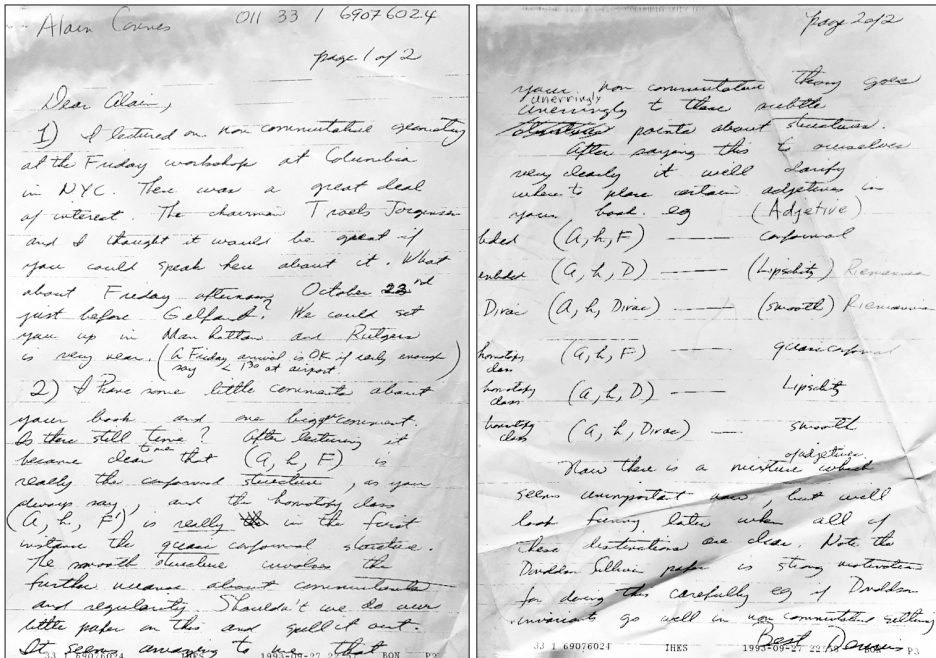 Alain Connes 011 33 1 69076024
page 1 of 2
Dear Alain,
1) I lectured on non commutative geometry
at the Friday workshop at Columbia
in NYC. There was a great deal
of interest. The chairman Troels Jorgensen
and I thought it would be great if
you could speak here about it. What
about Friday afternoon October 22nd
just before Gelfand? We could set
you up in Manhattan and Rutgers
is very near. (A Friday arrival is OK if early enough
say < 1:30 at airport)
2) I have some little comments about
your book and one bigger comment.
Is there still time? After lecturing it
became clear to me that (A, h, F) is
really the conformal structure, as you
always say, and the homotopy class
(A, h, F), is really in the first
instance the quasi conformal structure.
The smooth structure involves the
further nuance about commutators
and regularity. Shouldn't we do our
little paper on this and spell it out.
It seems amazing to me that
33 1 69076024 IHES 1993-09-27 22: BON P2
page 2 of 2
your non commutative thing goes
unerringly
unerringly to these subtle
points about structures.
After saying this to ourselves
very clearly it will clarify
where to place certain adjectives in
your book. eg (Adjetive)
(A, h, F) —— conformal
(A, h, D) —— (Lipschitz) Riemannian
Dirac (A, h, Dirac) —— (smooth) Riemannian
homotopy class (A, h, F) —— quasiconformal
homotopy class (A, h, D) —— Lipschitz
homotopy class (A, h, Dirac) —— smooth
Now there is a mixture of adjetives which
seems unimportant now, but will
look funny later when all of
these distinctions are clear. Note the
Donaldson Sullivan paper is strong motivation
for doing this carefully eg if Donaldson
invariants go well in non commutative setting
Best Dennis
33 1 69076024 IHES 1993-09-27 22: BON P3